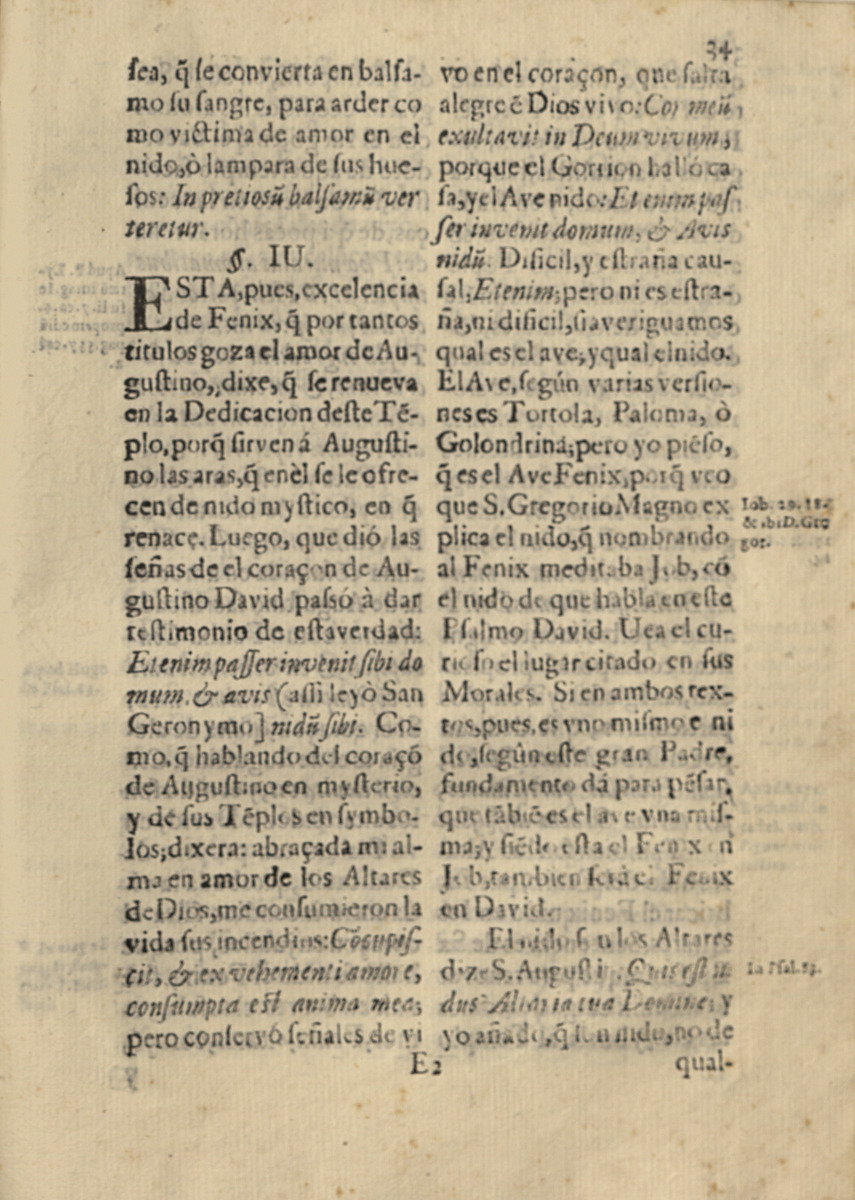 34
sea, q̃ se convierta en balsa-
mo su sangre, para arder co
mo victima de amor en el
nido, ò lampara de sus hue-
sos: In pretiosũ balsamũ ver
teretur.
§. IU.
ESTA, pues, excelencia
de Fenix, q̃ por tantos
titulos goza el amor de Au-
gustino, dixe, q̃ se renueva
en la Dedicacion deste Tẽ-
plo, porq̃ sirven á Augusti-
no las aras, q̃ enèl se le ofre-
cen de nido mystico, en q̃
renace. Luego, que dió las
señas de el coraçon de Au-
gustino David passó à dar
restimonio de esta verdad:
Etenim passer invenit sibi do
mum, & avis (assi leyò San
Geronymo] nidũ sibi. Co-
mo, q̃ hablando del coraçõ
de Augustino en mysterio,
y de sus Tẽplos en symbo-
los, dixera: abraçada mi al-
ma en amor de los Altares
de Dios, me consumieron la
vida sus incendios: Cõcupis-
cit, & ex vehementi amore,
consumpta est anima mea;
pero conservó señales de vi
vo en el coraçon, que salta
alegre ẽ Dios vivo: Cor meũ
exultavit in Deum vivum,
porque el Gorrion halló ca
sa, y el Ave nido: Etenim pas
ser invenit domum, & Avis
nidũ. Dificil, y estraña cau-
sal, Etenim; pero ni es estra-
ña, ni dificil, si averiguamos
qual es el ave, y qual el nido.
El Ave, según varias versio-
nes es Tortola, Paloma, ò
Golondrina; pero yo piẽso,
q̃ es el Ave Fenix, porq̃ veo
que S. Gregorio Magno ex
plica el nido, q̃ nombrando
al Fenix meditaba Job, cõ
el nido de que habla en este
Psalmo David. Uea el cu-
rioso el lugar citado en sus
Morales. Si en ambos tex-
tos, pues, es vno mismo e ni
do, según este gran Padre,
fundamento dá para pẽsar,
que tãbiẽ es el ave vna mis-
ma; y siẽdo esta el Fenix en
Job, tambien será el Fenix
en David.
El nido son los Altares
dize S. Augusti. ni
dus Altaria tua Domine; y
yo añado, q̃ son nido, no de
Iob. 29. 18.
& ibi D. Gre
gor.
In Psal. 83.
E2
qual-